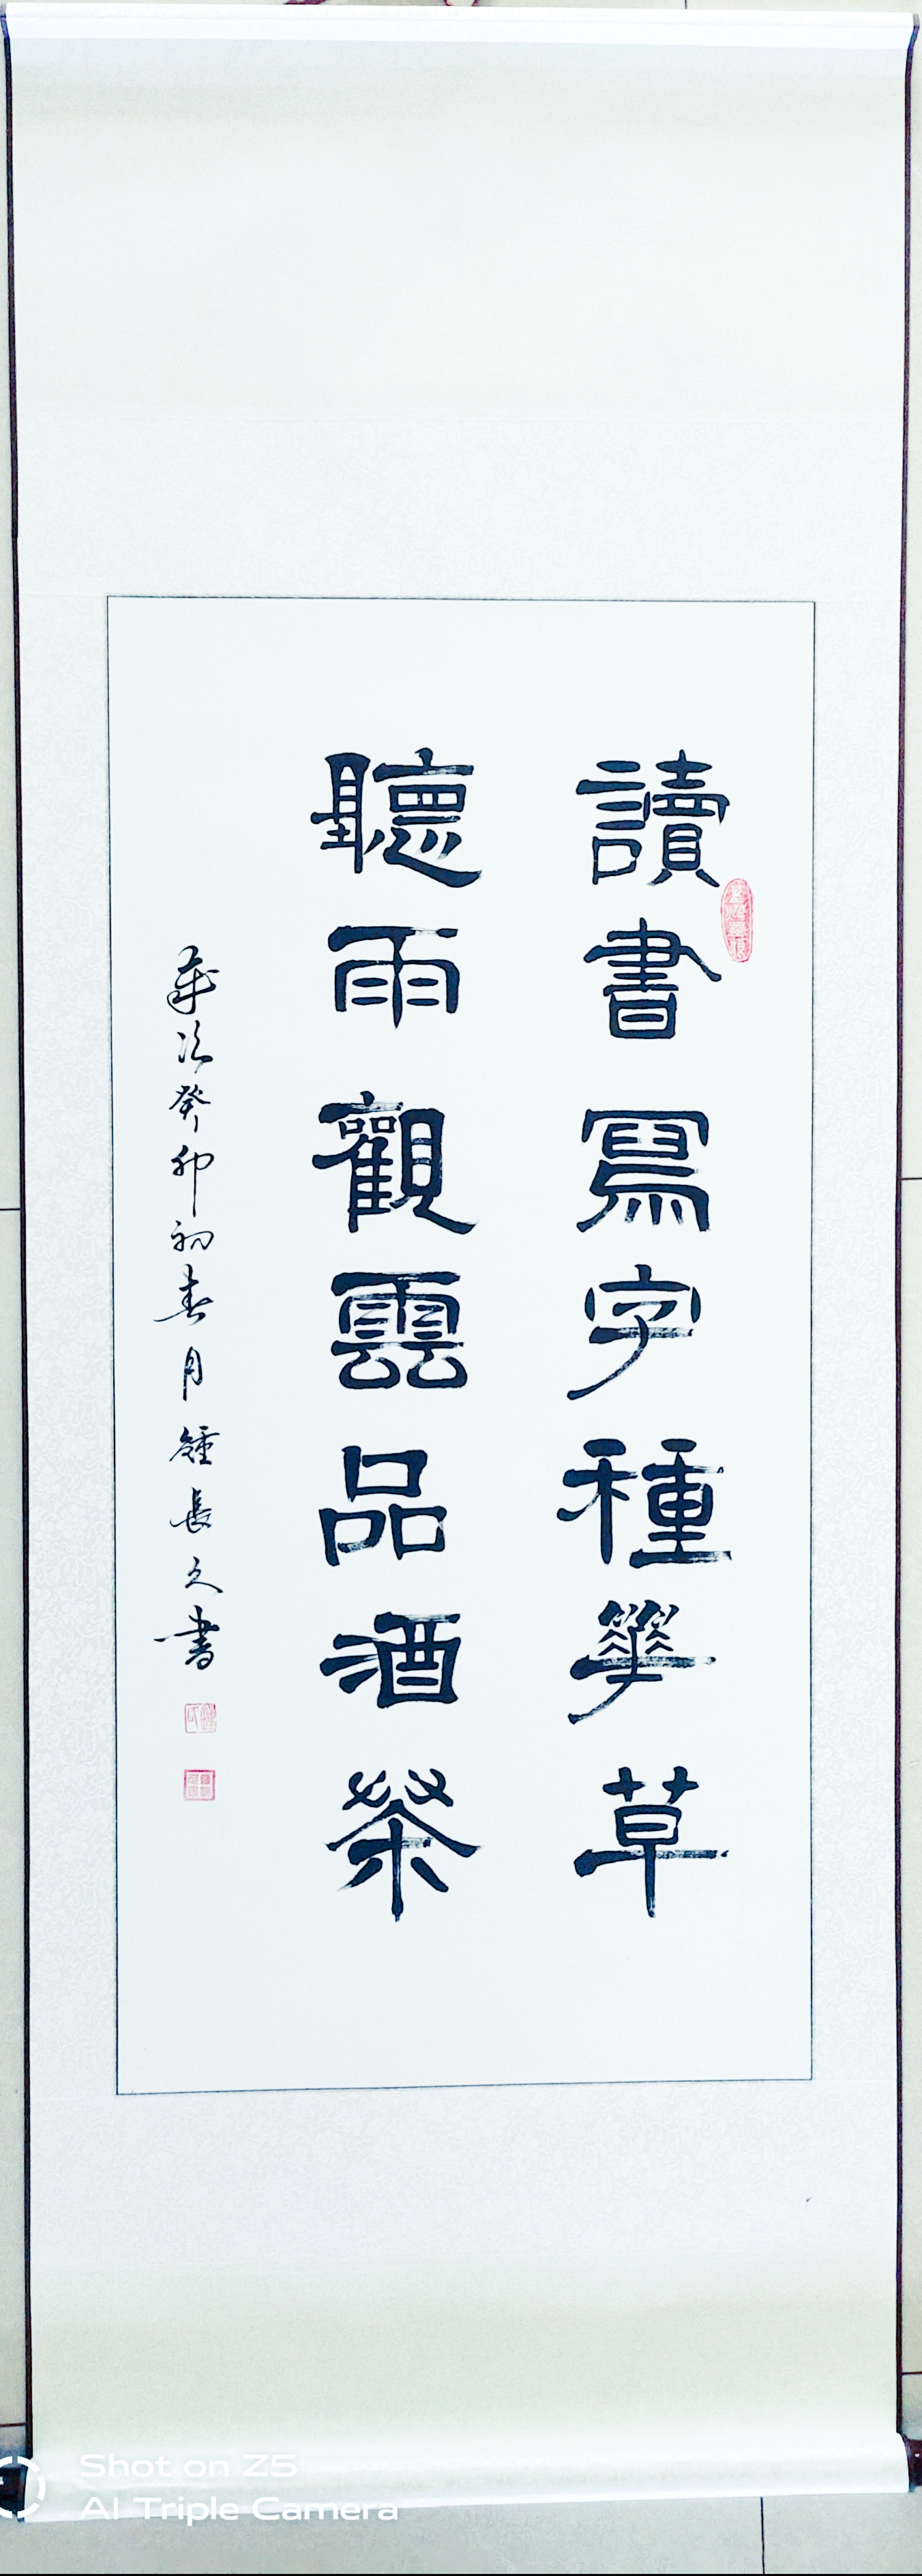 讀書寫字種華草
聽雨觀雲品酒茶
歲次癸卯初春月鍾長久書
Shot on Z5
AI Triple Camera